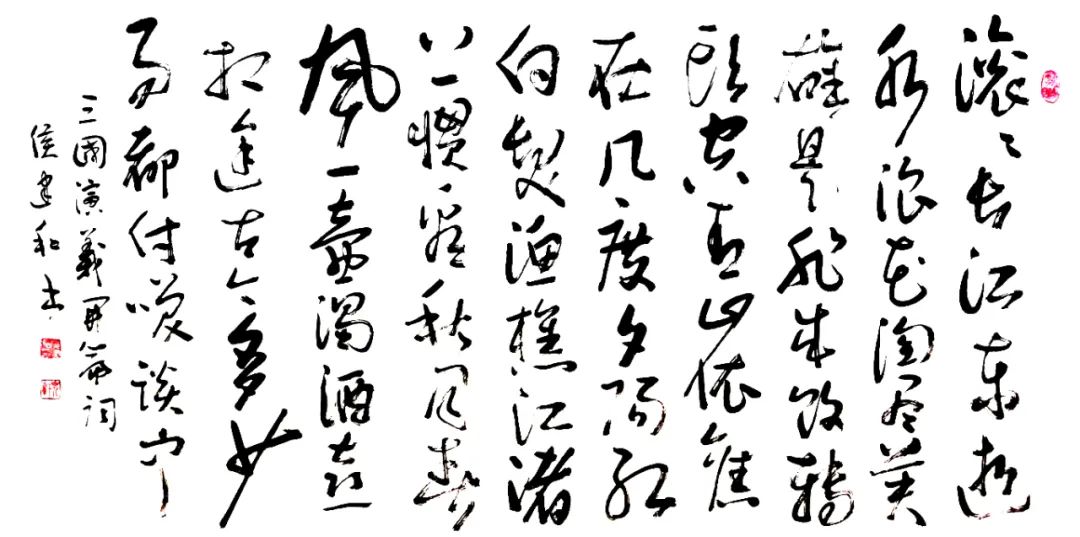 滚〻长江东逝
水浪花淘尽英
雄是非成败轉
头空青山依舊
在几度夕阳红
白髮渔樵江渚
上惯看秋月春
风一壶濁酒喜
相逢古今多少
事都付笑谈中
三國演義開篇词
侯建和书